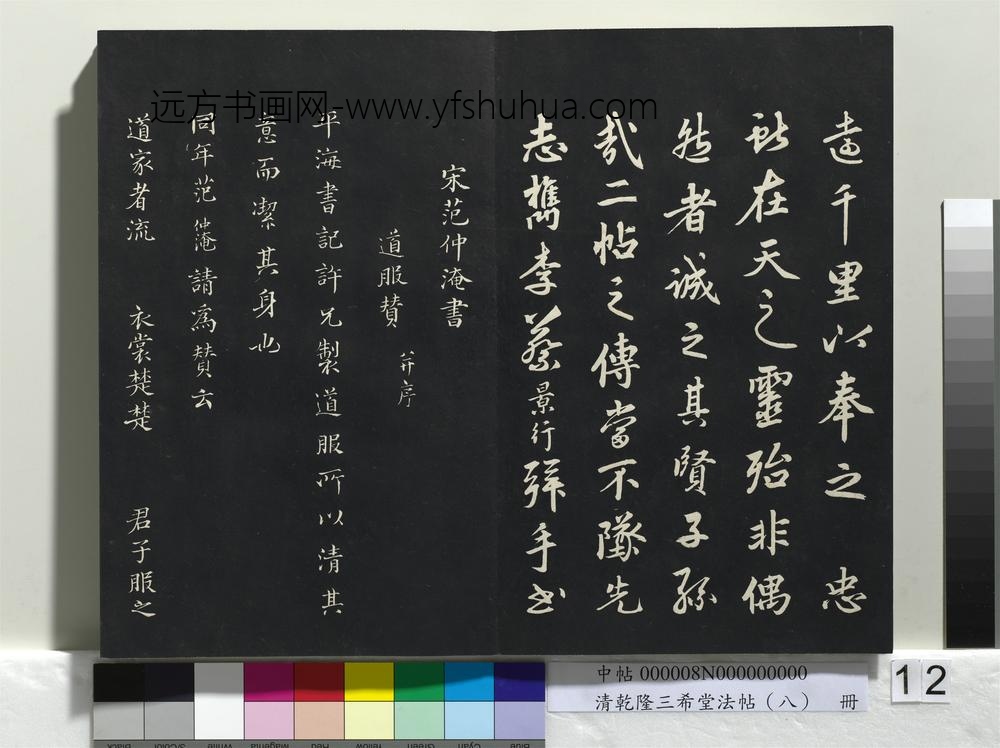 远方书画网-www.yfshuhua.com
千里以奉之 忠
在天之靈殆非偶
然者誠之其賢子孫
哉二帖之傳當不墜先
志檇李蔡景行拜手書
宋范仲淹書
道服贊 并序
平海書記許兄製道服所以清其
意而潔其身也
同年范仲淹請爲贊云
道家者流 衣裳楚楚 君子服之
中帖 000008N000000000
清乾隆三希堂法帖(八) 冊
12
Black
3/Color
White
Magenta
Red
Yellow
Green
Cyan
Blue